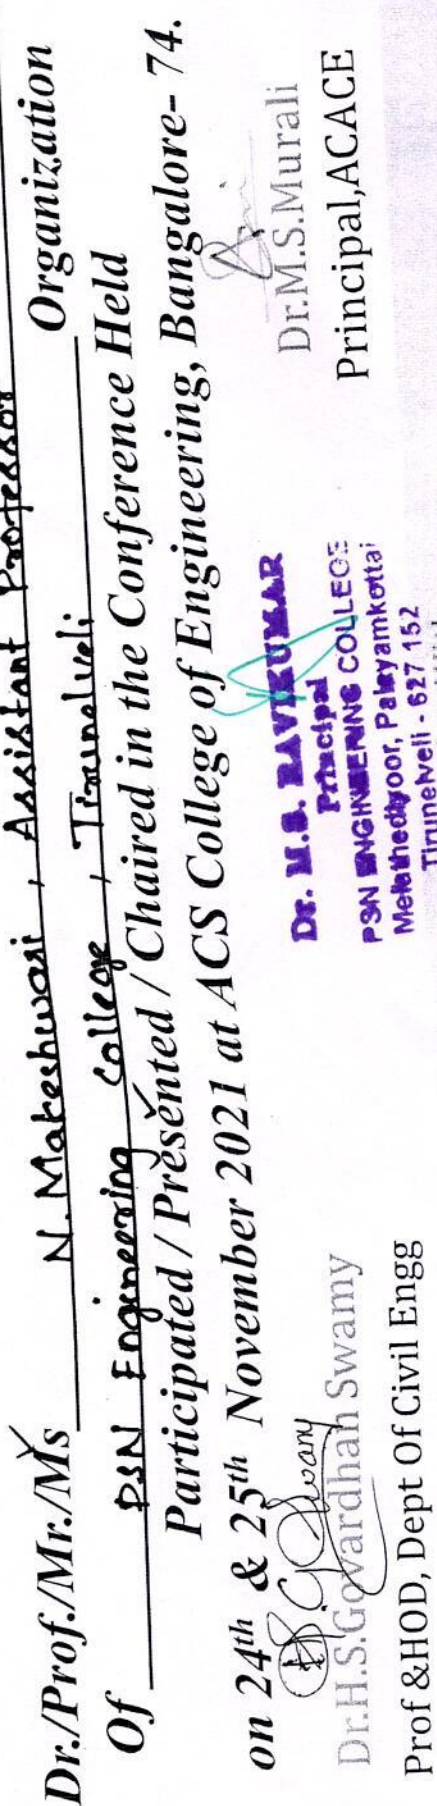 Dr./Prof./Mr./Ms N. Mateshwari, Assistant Professor
Of PSN Engineering College, Tirunelveli Organization
Participated / Presented / Chaired in the Conference Held
on 24th & 25th November 2021 at ACS College of Engineering, Bangalore- 74.
Dr.H.S.Govardhan Swamy
Prof &HOD, Dept Of Civil Engg
Dr. M.S. RAVIKUMAR
Principal
PSN ENGINEERING COLLEGE
Melathediyoor, Palayamkottai
Tirunelveli - 627 152
Dr.M.S.Murali
Principal,ACACE